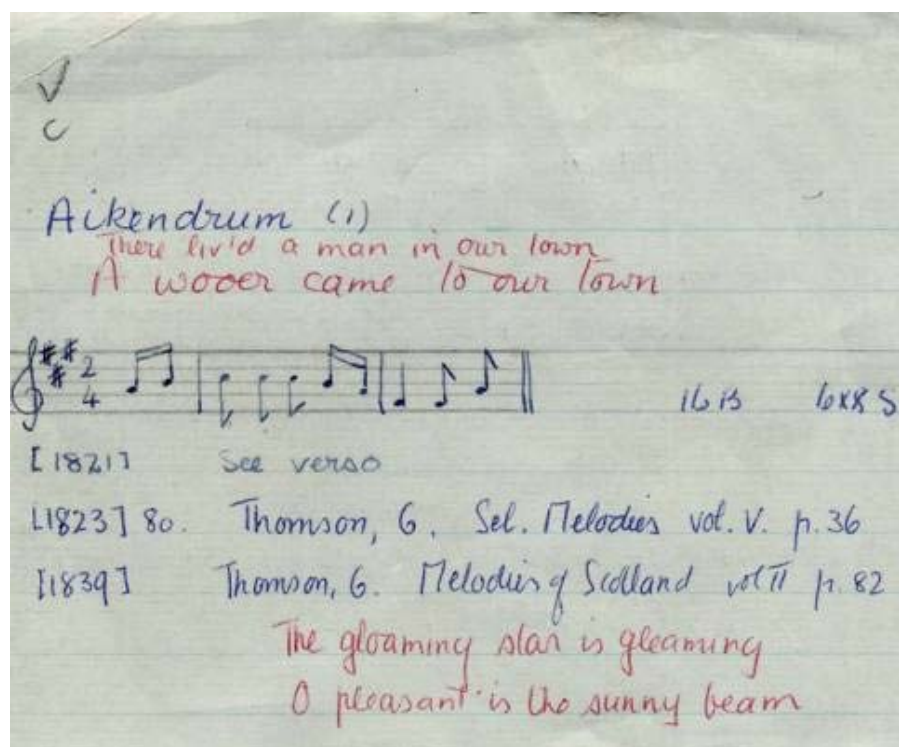 ✓
c
Aikendrum (1)
There liv'd a man in our town
A wooer came to our town
2
4
16 B 6x8 S
[1821] See verso
[1823] 80. Thomson, G. Sel. Melodies vol. V. p. 36
[1839] Thomson, G. Melodies of Scotland vol II p. 82
The gloaming star is gleaming
O pleasant is the sunny beam